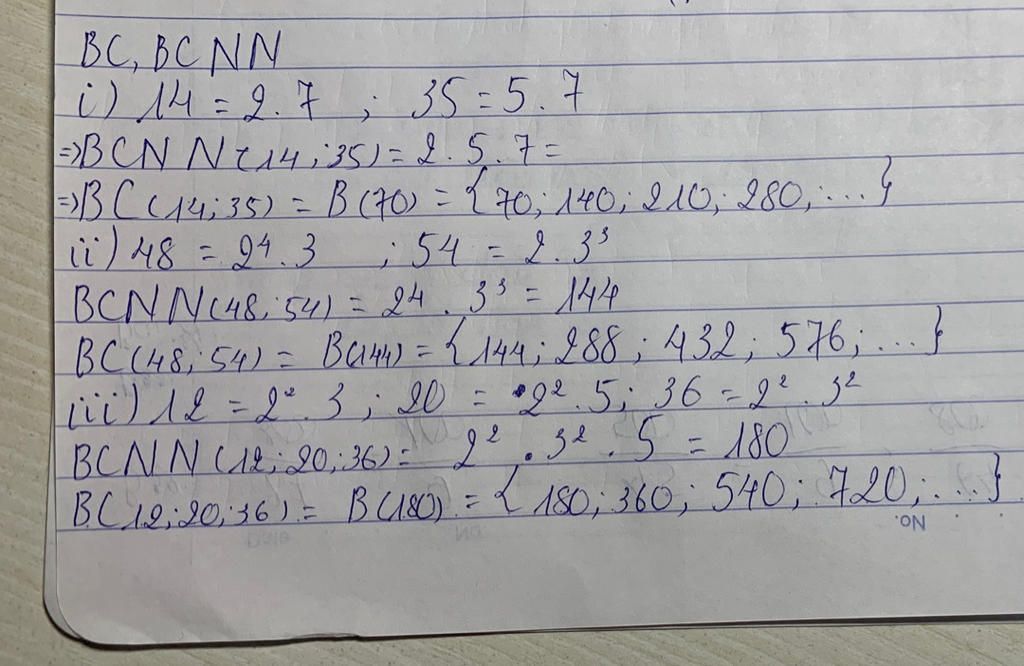 BC, BCNN
i) 14 = 2.7 ; 35 = 5.7
=> BCNN (14; 35) = 2.5.7 =
=> BC (14; 35) = B(70) = {70; 140; 210; 280; ...}
ii) 48 = 2⁴.3 ; 54 = 2.3³
BCNN(48; 54) = 24.3³ = 144
BC(48; 54) = B(144) = {144; 288; 432; 576; ...}
iii) 12 = 2².3; 20 = 2².5; 36 = 2².3²
BCNN (12; 20; 36) = 2².3².5 = 180
BC(12; 20; 36) = B(180) = {180; 360; 540; 720; ...}